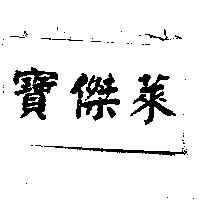 寶傑萊